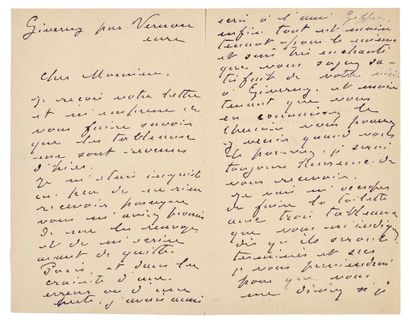 Giverny par Vernon
eure
Cher Monsieur,
Je reçois votre lettre
et m'empresse de
vous faire savoir
que les tableaux
me sont revenus
d'hier.
Je m'étais inquiété
un peu de ne rien
recevoir puisque
vous m'aviez promis
de me les envoyer
et de m'écrire
avant de quitter
Paris, et dans la
crainte d'une
erreur ou d'une
perte, j'avais aussi
écrit à l'ami
enfin tout est maintenant
pour le mieux
et suis très enchanté
que vous soyez satisfait
de votre visite
à Giverny, et maintenant
que vous
en connaissez le
chemin vous pouvez
y venir quand vous
le pourrez, je serai
toujours heureux de
vous recevoir.
Je vais m'occuper
de faire la toilette
aux trois tableaux
que vous m'indiquez
dès qu'ils seront
terminés et secs
je vous préviendrai
pour que vous
me disiez si je